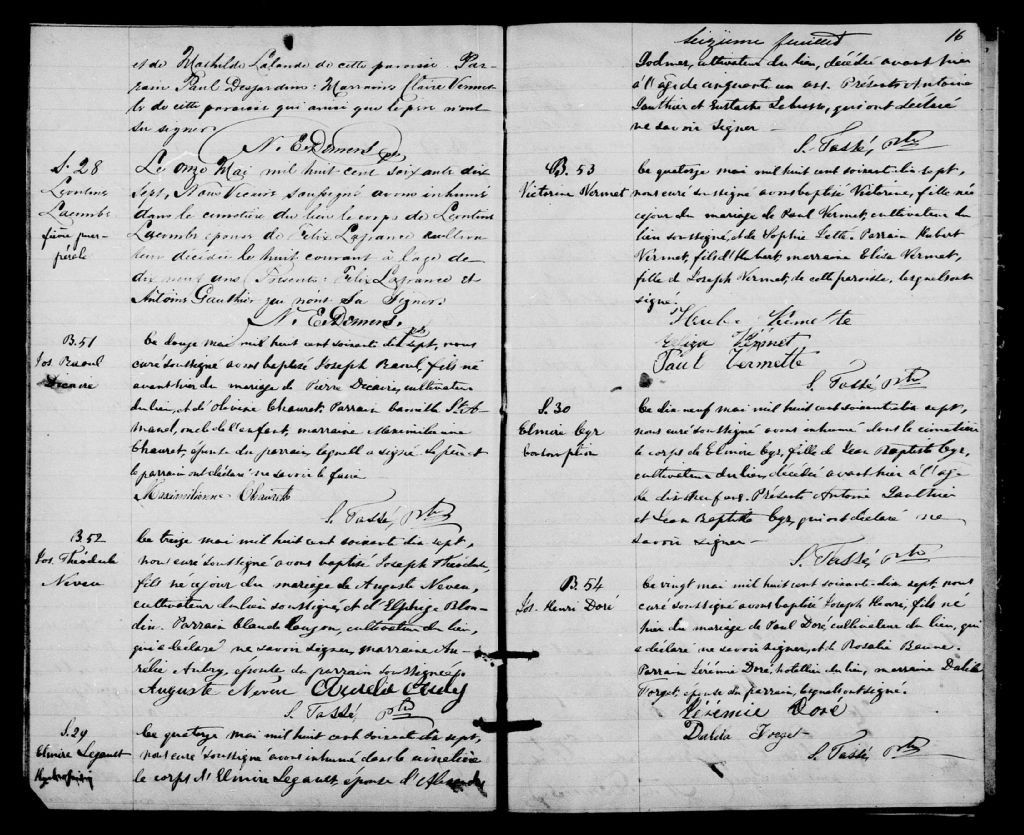 et de Mathilde Lalande de cette paroisse. Par-
rain Paul Desjardins: Marraine Claire Vermet-
te de cette paroisse qui ainsi que le père n'ont
su signer
N. E. Demers ptre
S. 28
Léontine
Lacombe
fièvre puer-
pérale
Le onze Mai mil huit cent soixante dix
sept, Nous Vicaire soussigné avons inhumé
dans le cimetière du lieu le corps de Léontine
Lacombe épouse de Félix Lafrance cultiva-
teur décédée le huit courant à l'âge de
dix neuf ans. Présents: Félix Lafrance et
Antoine Gauthier qui n'ont su signer
N. E. Demers. ptre
B. 51
Jos. Raoul
Décaire
Ce douze mai mil huit cent soixante dix sept, nous
curé soussigné avons baptisé Joseph Raoul, fils né
avant hier du mariage de Pierre Décaire, cultivateur
du lieu, et d'Olivine Chauret. Parrain Camille St. A-
mand, oncle de l'enfant, marraine Maximilienne
Chauret, épouse du parrain, laquelle a signé. Le père et
le parrain ont déclaré ne savoir le faire
Maximilienne Chaurette
S. Tassé, Ptre
B 52
Jos. Théodule
Neveu
Ce treize mai mil huit cent soixante dix sept,
nous curé soussigné avons baptisé Joseph Théodule,
fils né ce jour du mariage de Auguste Neveu,
cultivateur du lieu soussigné, et d'Elphège Blon-
din. Parrain Claude Lauzon, cultivateur du lieu,
qui a déclaré ne savoir signer, marraine Au-
rélie Aubry, épouse du parrain soussignée.
Auguste Neveu Aurélie Aubry
S. Tassé, Ptre
S. 29
Elmire Legault
Ce quatorze mai mil huit cent soixante dix sept,
nous curé soussigné avons inhumé dans le cimetière
le corps d'Elmire Legault, épouse d'Alexandre
Seizième feuillet
16
Godmer, cultivateur du lieu, décédée avant hier
à l'âge de cinquante un ans. Présents Antoine
Gauthier et Eustache Lebuis, qui ont déclaré
ne savoir signer
S. Tassé, Ptre
B. 53
Victorine Vermet
Ce quatorze mai mil huit cent soixante dix sept,
nous curé soussigné avons baptisé Victorine, fille née
ce jour du mariage de Paul Vermet, cultivateur du
lieu soussigné, et de Sophie Latte. Parrain Hubert
Vermet, fils d'Hubert, marraine Elisa Vermet,
fille de Joseph Vermet, de cette paroisse, lesquels ont
signé.
Vermette
Eliza Vermet
Paul Vermette
S. Tassé Ptre
S. 30
Elmire Cyr
Consomption
Ce dix neuf mai mil huit cent soixante dix sept,
nous curé soussigné avons inhumé dans le cimetière
le corps de Elmire Cyr, fille de Jean Baptiste Cyr,
cultivateur du lieu, décédée avant hier à l'âge
de dix neuf ans. Présents Antoine Gauthier
et Jean Baptiste Cyr, qui ont déclaré ne
savoir signer
S. Tassé, Ptre
B. 54
Jos. Henri Doré
Ce vingt mai mil huit cent soixante dix sept, nous
curé soussigné avons baptisé Joseph Henri, fils né
hier du mariage de Paul Doré cultivateur du lieu, qui
a déclaré ne savoir signer, et de Rosalie Beaune.
Parrain Jérémie Doré, hôtelier du lieu, marraine Dalila
Forget, épouse du parrain, lesquels ont signé.
Jérémie Doré
Dalila Forget
S. Tassé, Ptre